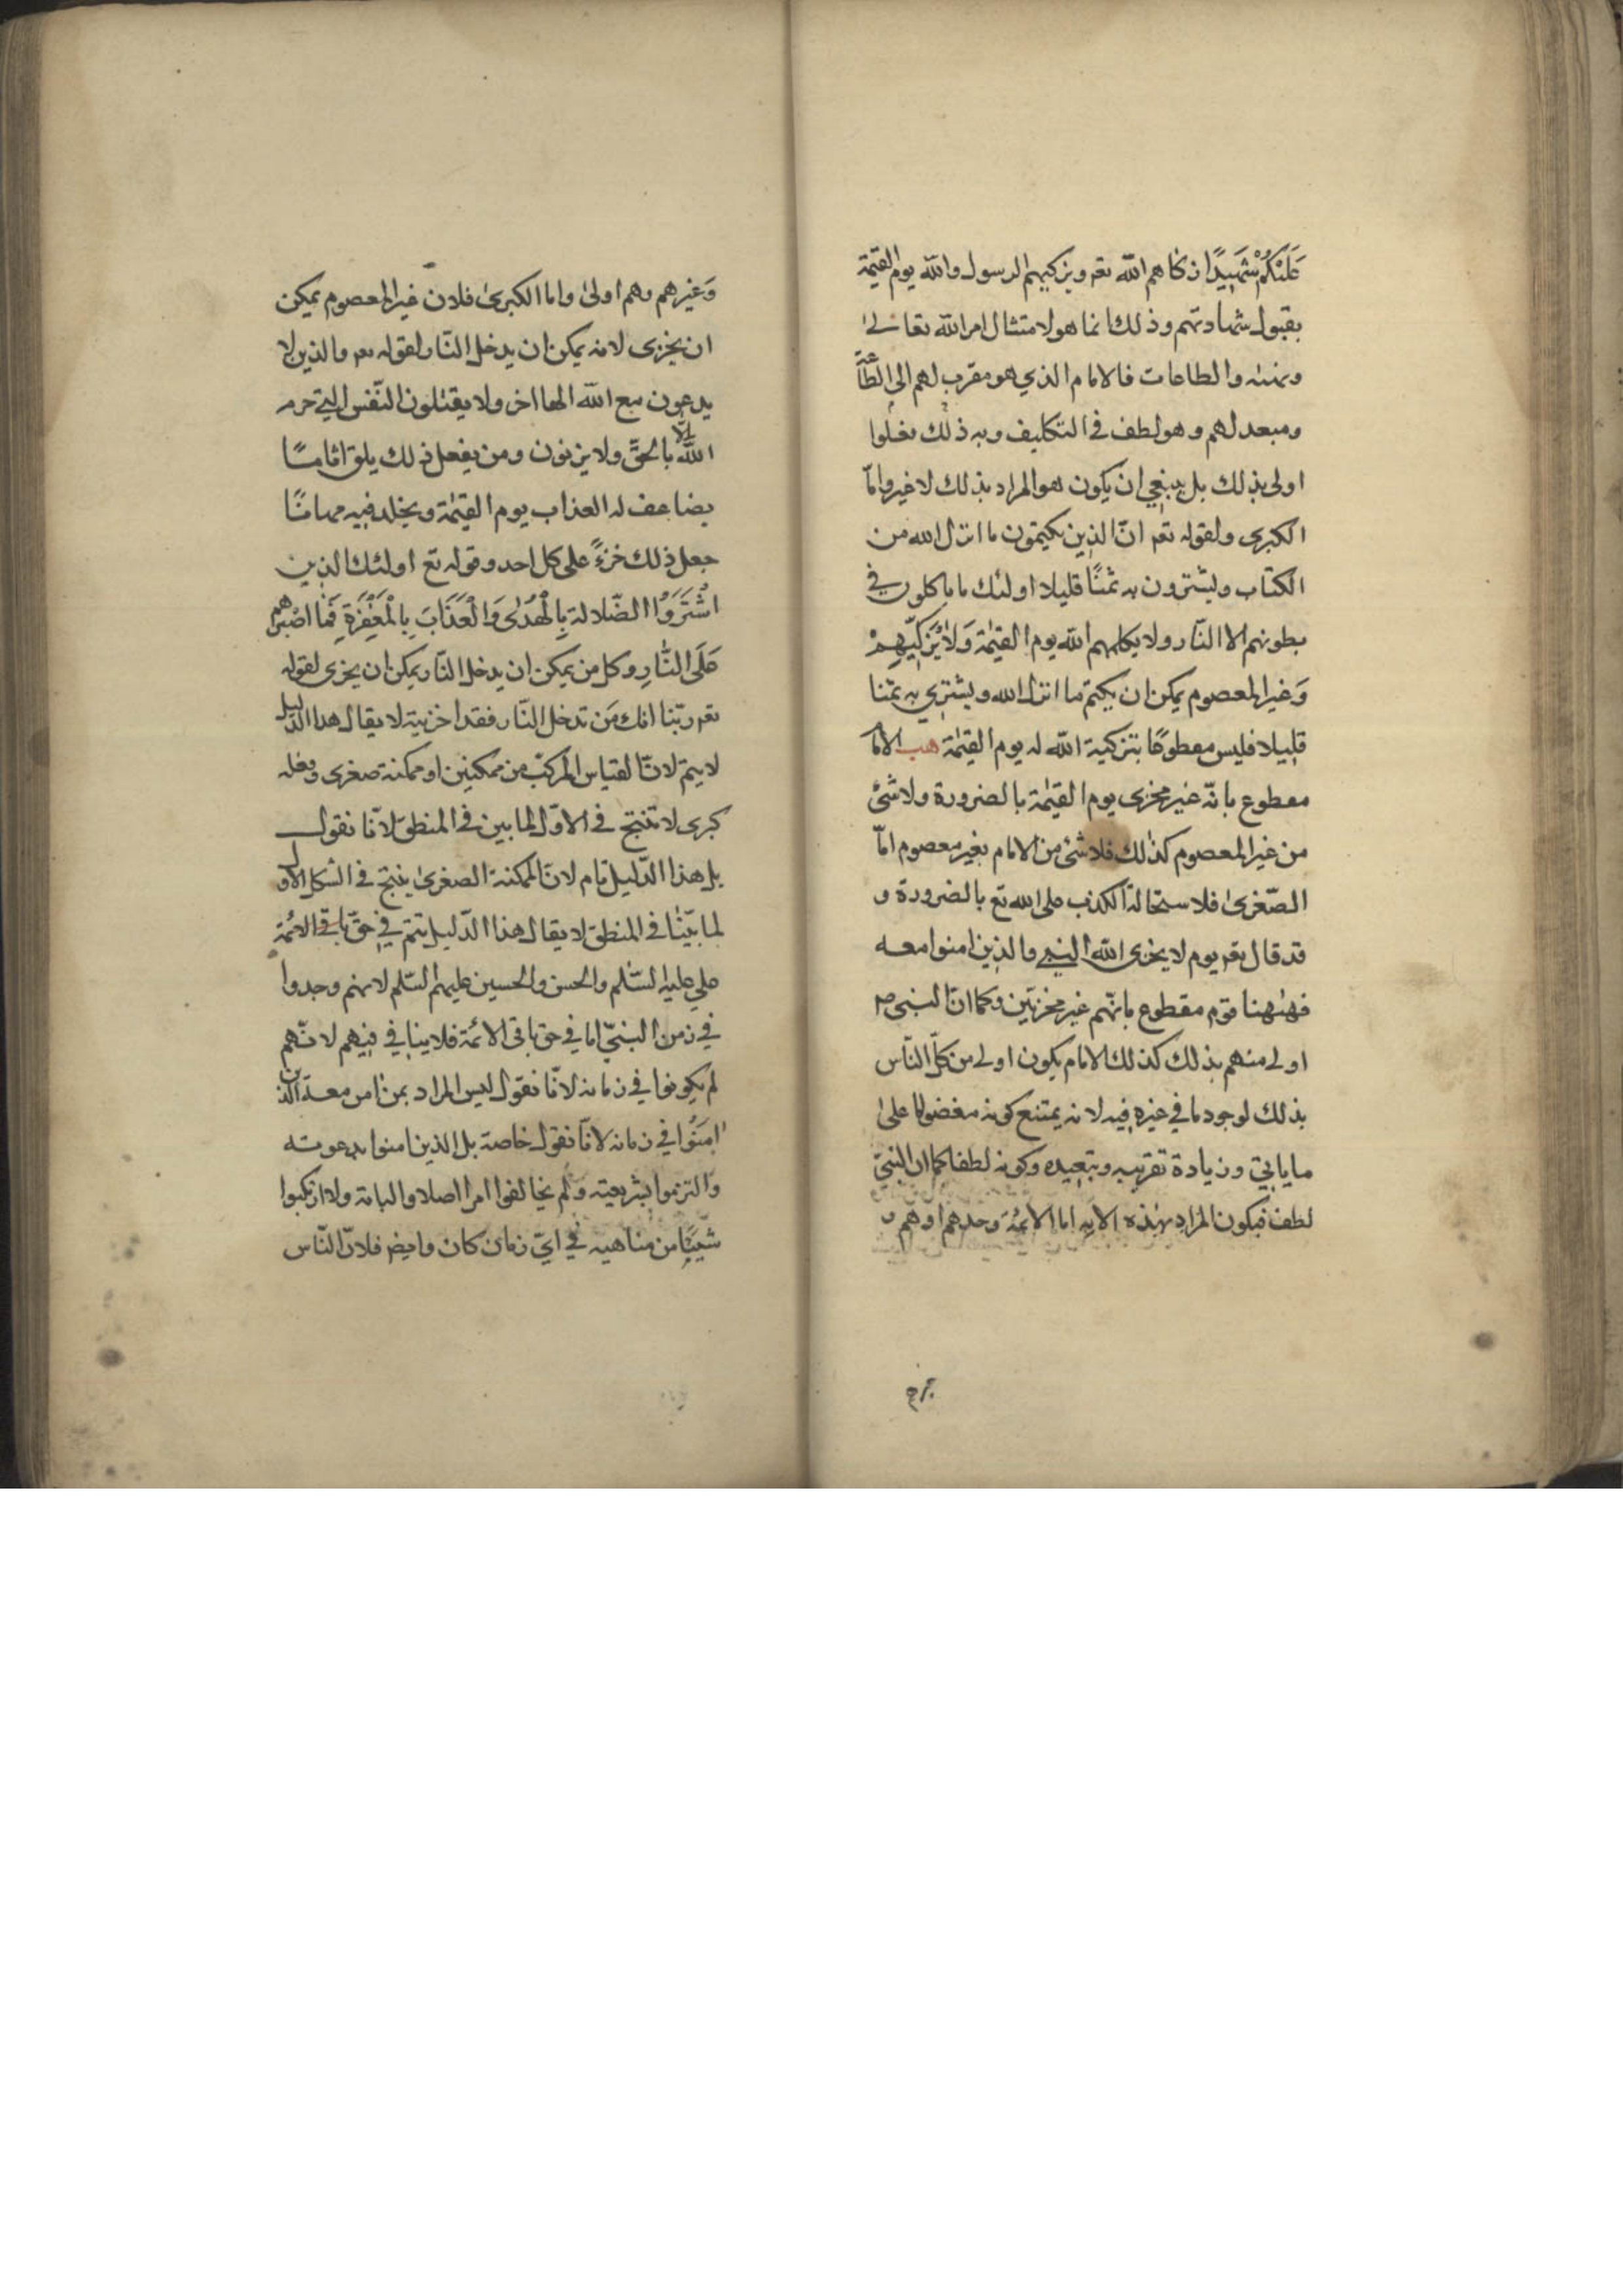 عَلَيْكُمْ شَهِيدًا ن كا هم الله تعم ويزكيهم الرسول والله يوم القيمة
بقبول شهادتهم وذلك انما هو لامتثال امر الله تعالى
ونهيه والطاعات فالامام الذي هو مقرب لهم الى الطاعة
ومبعد لهم وهو لطف في التكليف وبه ذلك
اولى بذلك بل ينبغي ان يكون هو المراد بذلك لا غير وامّا
الكبرى ولقوله تعم انّ الذين يكتمون ما انزل الله من
الكتاب ويشترون به ثمنًا قليلا اولئك ما ياكلون في
بطونهم الا النّار ولا يكلمهم الله يوم القيمة وَلَا يُزَكِّيهِمْ
وَغير المعصوم يمكن ان يكتم ما انزل الله ويشتري به ثمنا
قليلا فليس مقطوعًا بتزكية الله له يوم القيمة هب الامام
مقطوع بانّه غير مخزى يوم القيمة بالضرورة ولا شئ
من غير المعصوم كذلك فلا شئ من الامام بغير معصوم امّا
الصّغرى فلاستحالة الكذب على الله تع بالضرورة و
قد قال تعم يوم لا يخزى الله النبي والذين امنوا معه
فههنا قوم مقطوع بانّهم غير مخزيّين وكما انّ النبي ص
اولى منهم بذلك كذلك الامام يكون اولى من كلّ النّاس
بذلك لوجود ما في غيره فيه لانه يمتنع كونه مفضولا على
ما ياتي وزيادة تقريبه وتبعيده وكونه لطفا كما ان النبيّ
لطف فيكون المراد بهذه الاية اما الائمّة وحدهم او هم و
وَغيرهم وهم اولى واما الكبرى فلان غير المعصوم يمكن
ان يخزى لانه يمكن ان يدخل النّار لقوله تعم والذين لا
يدعون مع الله الها اخر ولا يقتلون النّفس التي حرم
الله الّا بالحقّ ولا يزنون ومن يفعل ذلك يلق اثاما
يضاعف له العذاب يوم القيمة ويخلد فيه مهانًا
جعل ذلك خزءً على كل احد وقوله تع اولئك الذين
اشْتَرَوُا الضّلالة بِالْهُدىَ وَالْعَذَابَ بِالْمَغْفِرَةِ فَمَا اصْبَرهم
عَلَى النَّارِ وكل من يمكن ان يدخل النّار يمكن ان يخزى لقوله
تعم ربّنا انك مَن تدخل النّار فقد اخزيته لا يقال هذا الدّليل
لا يتم لانّ القياس المركّب من ممكنين او ممكنة صغرى وفعله
كبرى لا تنتج في الاوّل لما بين في المنطق لانّا نقول
بل هذا الدّليل تام لانّ الممكنة الصغرى ينتج في الشكل الاول
لما بيّنّا في المنطق لا يقال هذا الدّليل يتم في حقّ باقي الائمّة
علي عليه السّلم والحسن والحسين عليهم السّلم لانهم وجدوا
في زمن النبيّ اما في حق باقى الائمّة فلا ينافي فيهم لانّهم
لم يكونوا في زمانه لانّا نقول ليس المراد بمن امن معه الّذين
امَنُوا في زمانه لانّا نقول خاصة بل الذين امنوا بدعوته
وَالتزموا بشريعته وَلم يخالفوا امرا اصلا والبتة ولا ارتكبوا
شَيئًا من مناهيه في ايّ زمان كان وايضر فلانّ النّاس